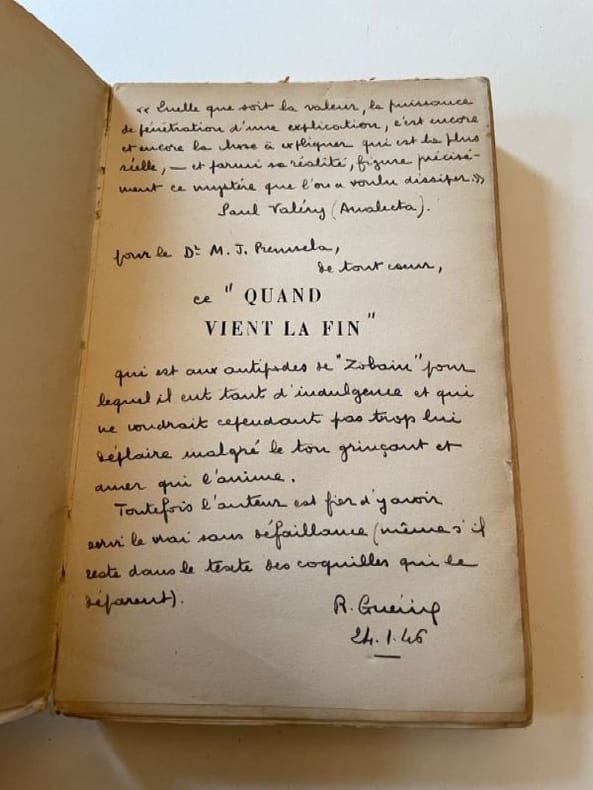 « Quelle que soit la valeur, la puissance
de pénétration d'une explication, c'est encore
et encore la chose à expliquer qui est la plus
réelle, — et parmi sa réalité, figure précisé-
ment ce mystère que l'on a voulu dissiper. »
Paul Valéry (Analecta).
pour le Dr M. J. Premsela,
de tout cœur,
ce " QUAND
VIENT LA FIN "
qui est aux antipodes de "Zobain" pour
lequel il eut tant d'indulgence et qui
ne voudrait cependant pas trop lui
déplaire malgré le ton grinçant et
amer qui l'anime.
Toutefois l'auteur est fier d'y avoir
servi le vrai sans défaillance (même s'il
reste dans le texte des coquilles qui le
déparent).
R. Guérin
24.1.46